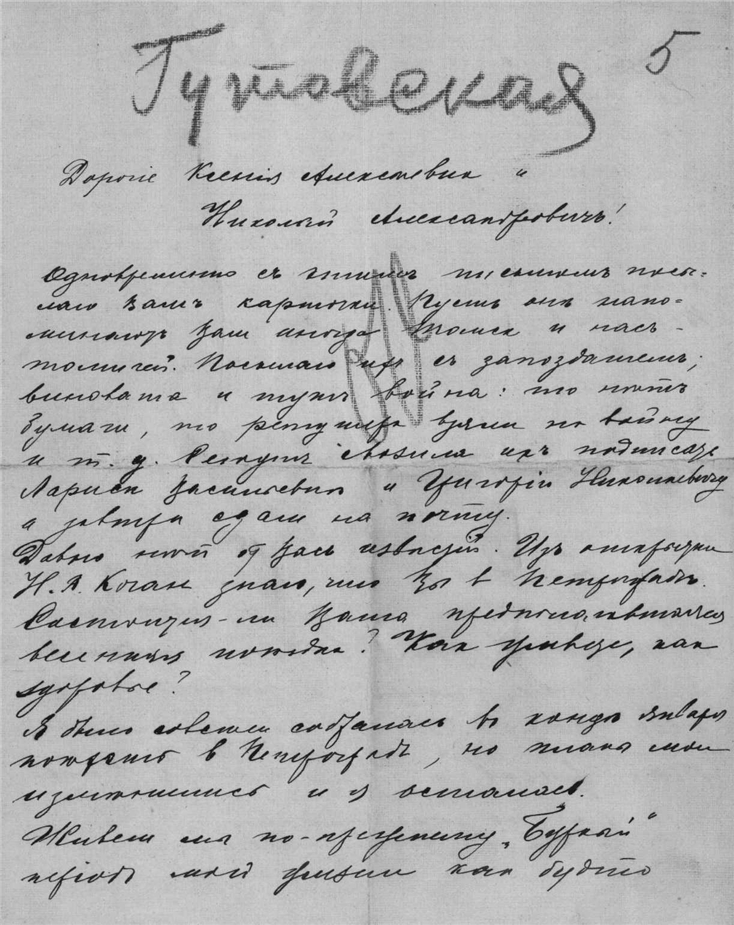 5
Гутовская
Дорогіе Ксенія Алексѣевна и
Николай Александровичъ!
Одновременно съ этимъ письмомъ посы-
лаю Вамъ карточки. Пусть онѣ напо-
минаютъ Вам иногда Томск и насъ -
томичей. Посылаю ихъ съ запозданіем;
виновата и тутъ война: то нѣтъ
бумаги, то ретушера взяли на войну
и т. д. Сегодня их подписать
Ларисѣ Васильевнѣ и Григорію Николаевичу
и завтра сдам на почту.
Давно нѣт от Васъ извѣстій. Изъ открытки
Н. Я. Коган знаю, что Вы в Петроградѣ.
Состоится-ли Ваша предполагавшаяся
весенняя поѣздка? Как живете, как
здоровье?
Я было совсем собралась въ концѣ января
поѣхать в Петроградъ, но планы мои
измѣнились и я осталась.
Живем мы по-прежнему. „Бурный“
періодъ моей жизни как будто